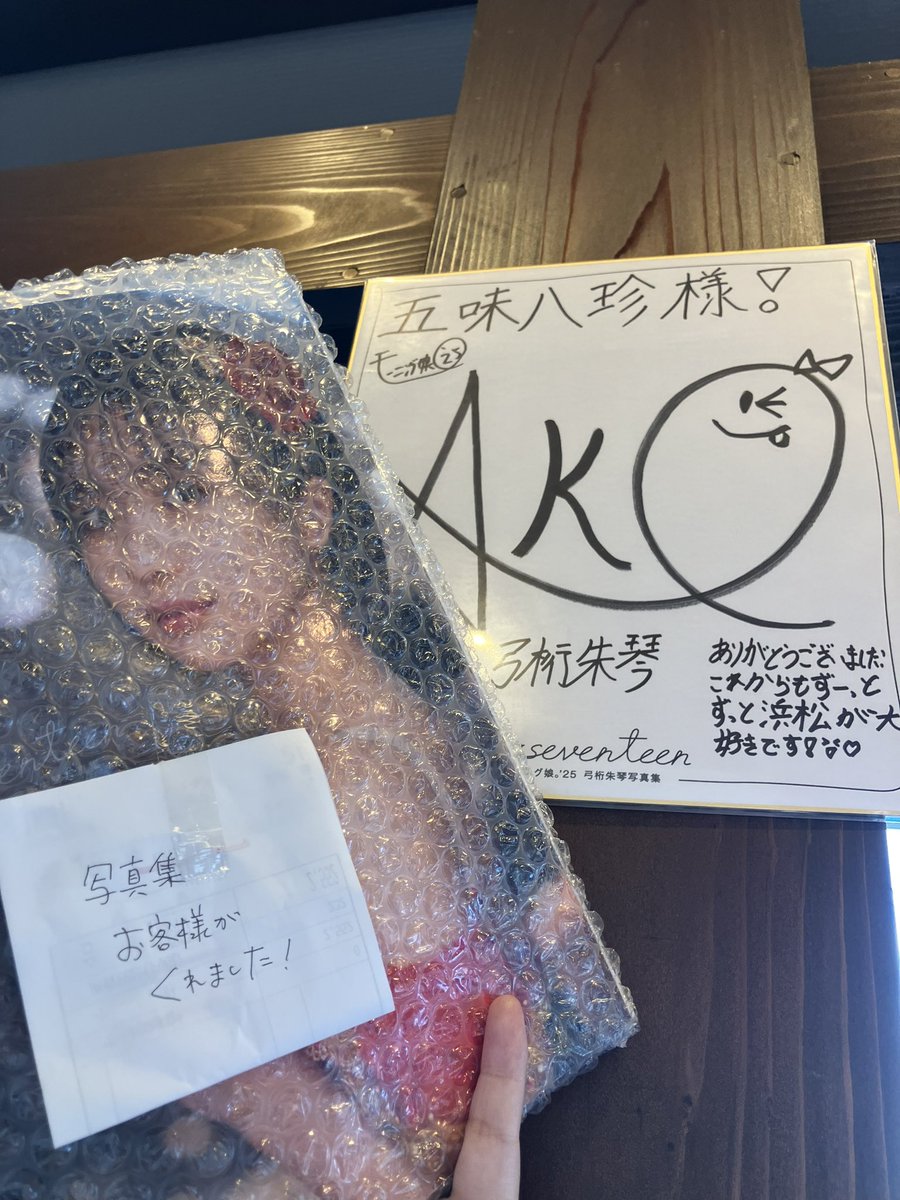 五味八珍様!
モーニング娘 25
AKO
弓桁朱琴
ありがとうございました
これからもずーっと
ずっと浜松が大
好きです!な♡
seventeen
グ娘。'25 弓桁朱琴写真集
写真集
お客様が
くれました!